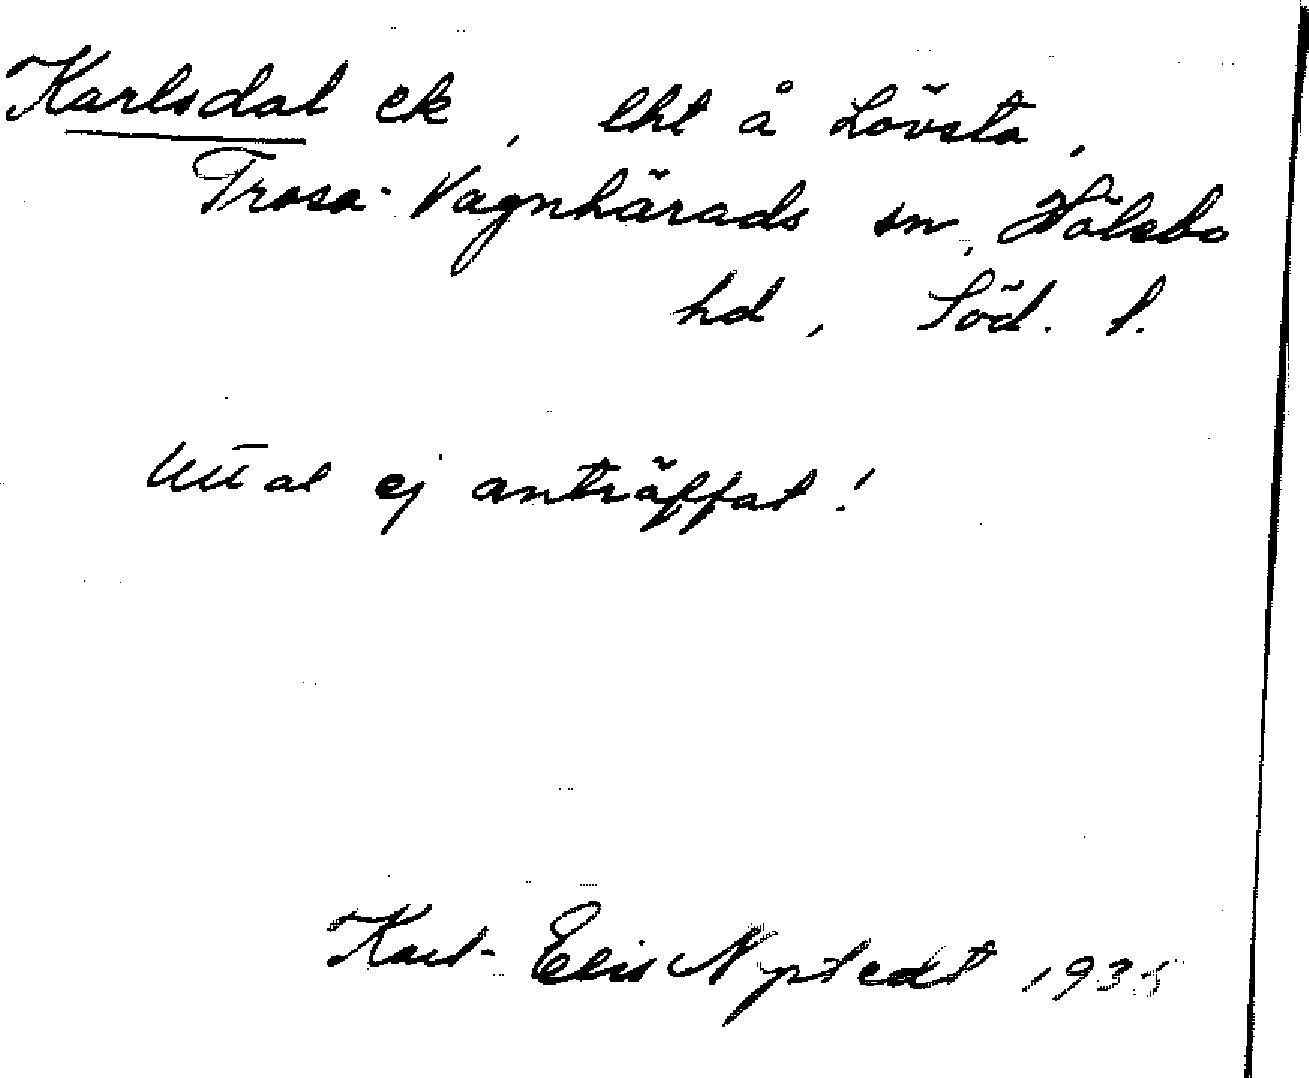 Karlsdal ek, lht å Lövsta,
Trosa-Vagnhärads sn, Hölebo
hd, Söd. l.
Uttal ej anträffat!
Karl-Elis Nystedt 1935